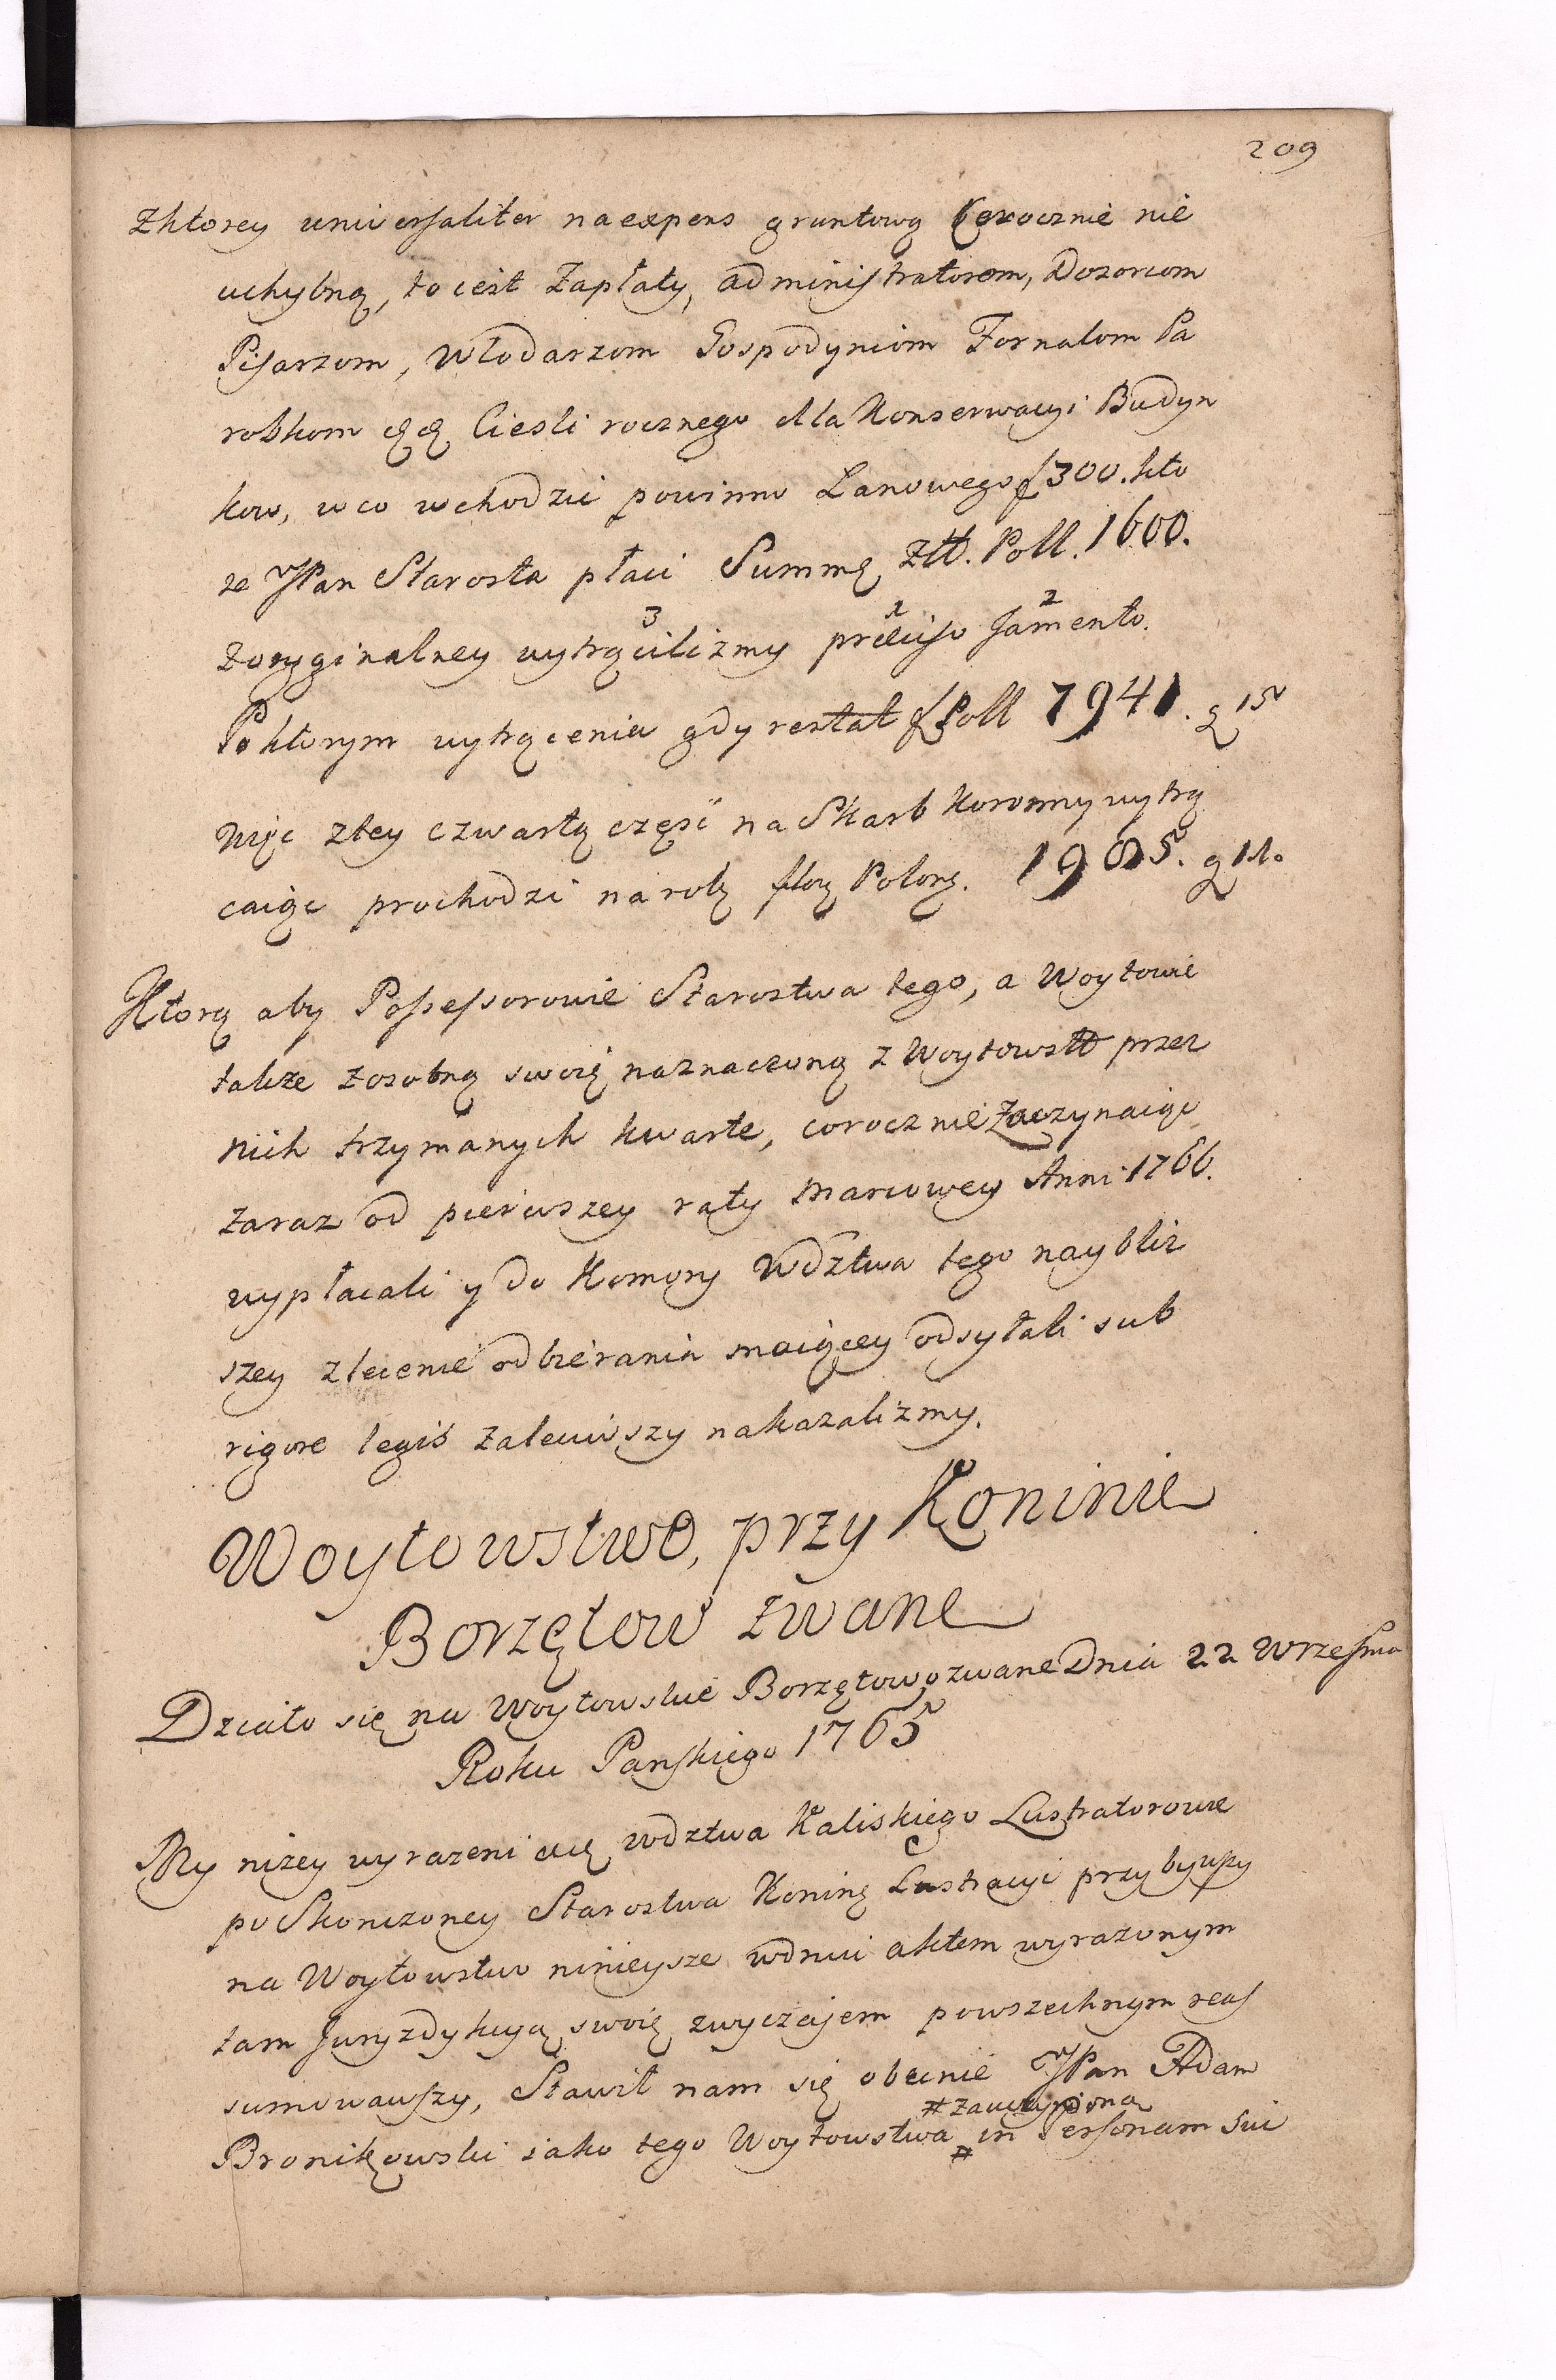 209
zktorey universaliter na expens gruntową corocznie nie
uchybną, to iest Zapłaty, administratorom, Dozorcom
Pisarzom, Włodarzom Gospodyniom Fornalom Pa
robkom etc Ciesli rocznego dla Konserwacyi Budyn
kow, w co wchodzić powinno Łanowego f 300. kto
re JPan Starosta płaci Summę złł. Poll. 1600.
3 1 2
zoryginalney wytrąciliżmy præciso Jamento.
Po ktorym wytrącenia gdy restat f Poll 7941. g 15
więc ztey czwartą część na Skarb Koronny wytrą
caiąc prochodzi na rolę flor Polon. 1985. g 11.
Którą aby Possessorowie Starostwa tego, a Woytowie
także zosobną swoię naznaczoną z Woytowstw przez
nich trzymanych kwartę, corocznie Zaczynaiąc
zaraz od pierwszey raty Marcowey Anni 1766.
wypłacali y do Komory Wdztwa tego naybliż
szey zlecenie odbierania maiącey odsyłali sub
rigore legis zaleciwszy nakazaliżmy.
Woytowstwo, przy Koninie
Borzętow zwane
Działo się na Woytowskie Borzętowo zwane Dnia 22 Wrzesnia
Roku Panskiego 1765
My niżey wyrażeni etc Wdztwa Kaliskiego Lustratorowie
po Skonczoney Starostwa Konin: Lustracyi przybywszy
na Woytowstwo ninieysze w dniu aktem wyrażonym
tam Juryzdykcyą swoię zwyczajem powszechnym reas
sumowawszy, Stawił nam się obecnie JPan Adam
# zaczyniona
Bronikowski iako tego Woytowstwa # in Personam Sui